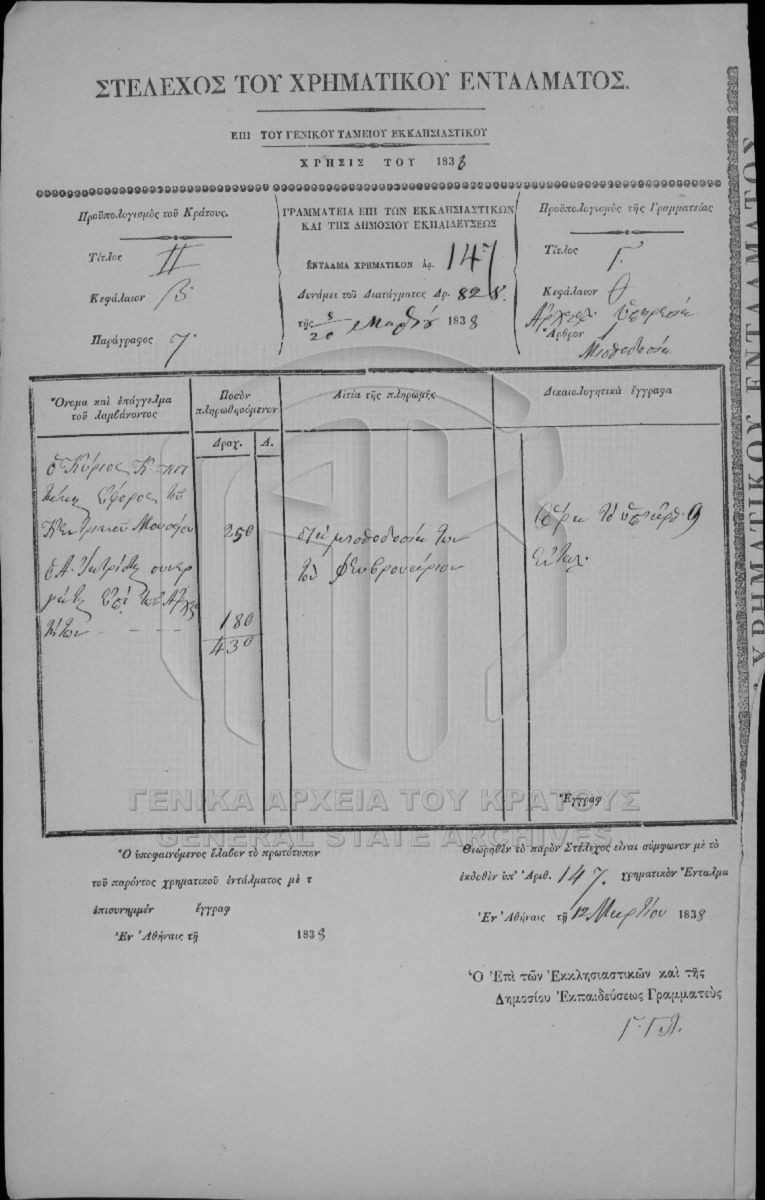 ΣΤΕΛΕΧΟΣ ΤΟΥ ΧΡΗΜΑΤΙΚΟΥ ΕΝΤΑΛΜΑΤΟΣ.
ΕΠΙ ΤΟΥ ΓΕΝΙΚΟΥ ΤΑΜΕΙΟΥ ΕΚΚΛΗΣΙΑΣΤΙΚΟΥ
ΧΡΗΣΙΣ ΤΟΥ 1838
Προϋπολογισμὸς τοῦ Κράτους.
Τίτλος ΙΙ
Κεφάλαιον β.
Παράγραφος 7.
ΓΡΑΜΜΑΤΕΙΑ ΕΠΙ ΤΩΝ ΕΚΚΛΗΣΙΑΣΤΙΚΩΝ
ΚΑΙ ΤΗΣ ΔΗΜΟΣΙΟΥ ΕΚΠΑΙΔΕΥΣΕΩΣ
ΕΝΤΑΛΜΑ ΧΡΗΜΑΤΙΚΟΝ Αρ. 147
Δυνάμει τοῦ Διατάγματος Αρ. 828.
τῆς 8/20 Μαρτίου 1838
Προϋπολογισμὸς τῆς Γραμματείας
Τίτλος Γ.
Κεφάλαιον θ
Ἀρχαιολ. Ὑπηρεσία
Ἄρθρον 1
Μισθοδοσία
Ὄνομα καὶ ἐπάγγελμα
τοῦ λαμβάνοντος
Ποσὸν
πληρωθησόμενον
Αἰτία τῆς πληρωμῆς
Δικαιολογητικὰ ἔγγραφα
Δραχ. Λ.
ὁ Κύριος Κ. Πιτ
τάκης ἔφορος τοῦ
Κεντρικοῦ Μουσείου 250
διὰ μισθοδοσίαν των
τοῦ Φευβρουαρίου
Ὅρα τὸ ὑπ' ἀριθ. 9
ἔνταλ.
ὁ Α. Ἰατρίδης συνερ
γάτης ἐπὶ τῶν Ἀρχαι
τήτων 180
430
Ἔγγραφ
ΓΕΝΙΚΑ ΑΡΧΕΙΑ ΤΟΥ ΚΡΑΤΟΥΣ
GENERAL STATE ARCHIVES
Ὁ ὑποφαινόμενος ἔλαβον τὸ πρωτότυπον
τοῦ παρόντος χρηματικοῦ ἐντάλματος μὲ τ
ἐπισυνημμέν ἔγγραφ
Ἐν Ἀθήναις τῇ 1838
Θεωρηθὲν τὸ παρὸν Στέλεχος εἶναι σύμφωνον μὲ τὸ
ἐκδοθὲν ὑπ' Ἀριθ. 147. χρηματικὸν Ἔνταλμα
Ἐν Ἀθήναις τῇ 12 Μαρτίου 1838
Ὁ Ἐπὶ τῶν Ἐκκλησιαστικῶν καὶ τῆς
Δημοσίου Ἐκπαιδεύσεως Γραμματεὺς
ΧΡΗΜΑΤΙΚΟΥ ΕΝΤΑΛΜΑΤΟΣ